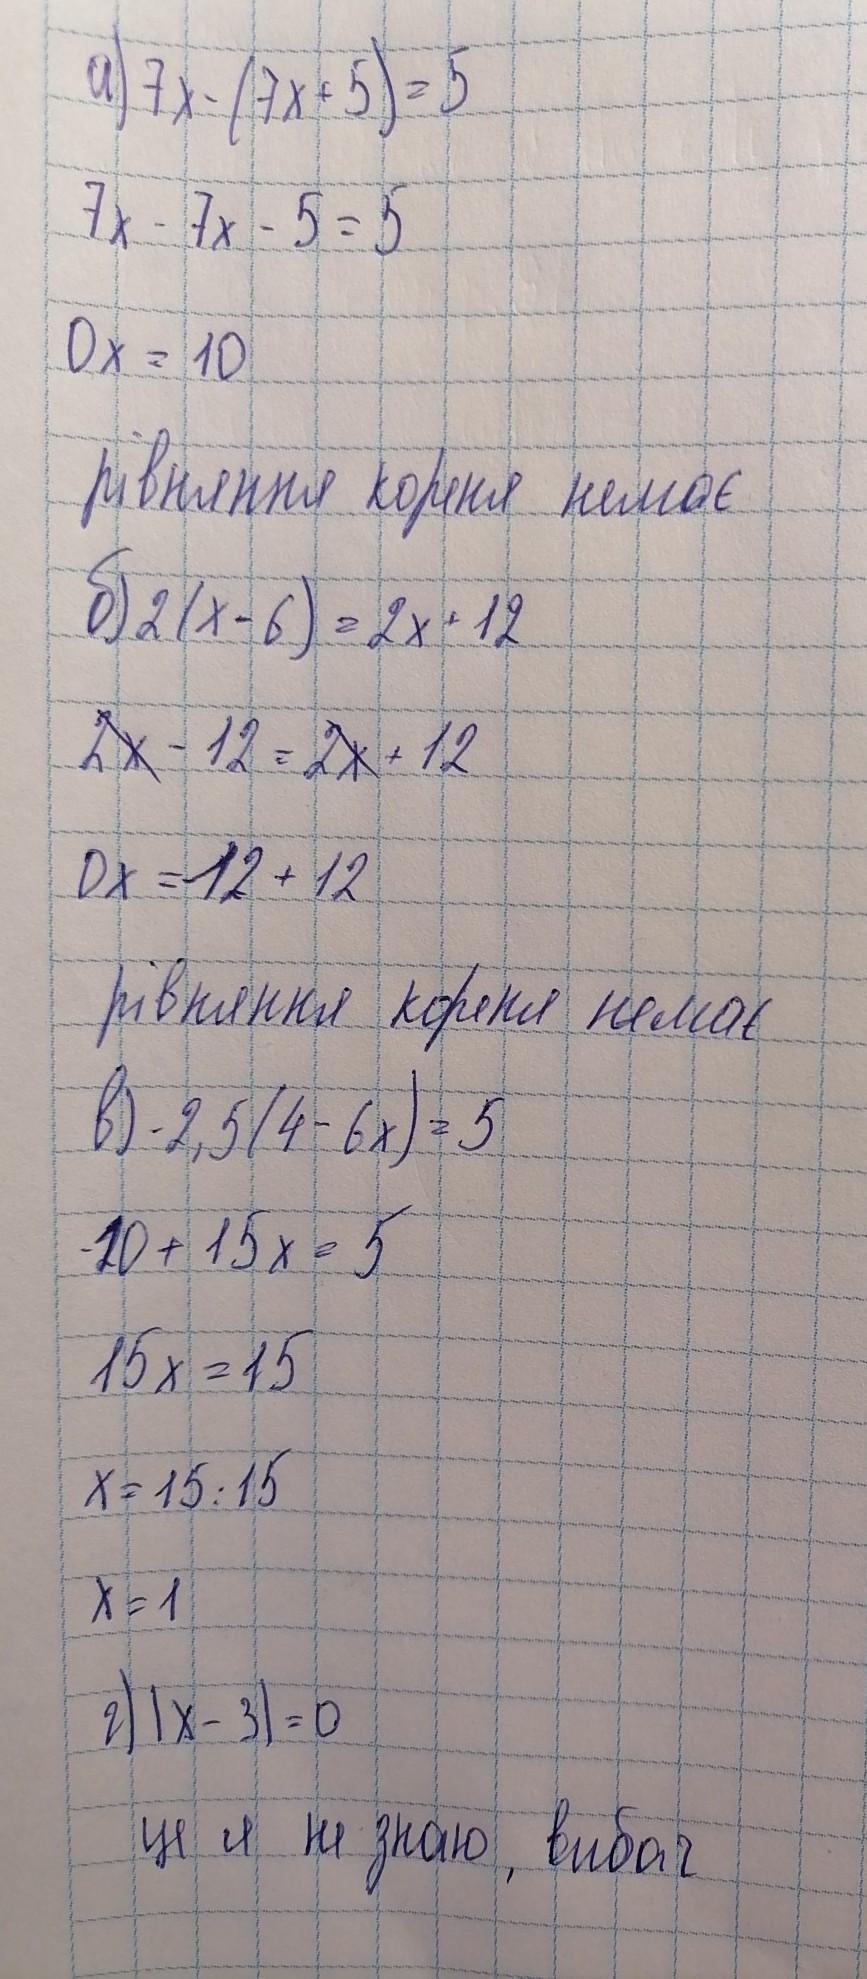 а) 7x - (7x + 5) = 5
7x - 7x - 5 = 5
0x = 10
рівняння кореня немає
б) 2(x - 6) = 2x + 12
2x - 12 = 2x + 12
0x = -12 + 12
рівняння кореня немає
в) -2,5(4 - 6x) = 5
-10 + 15x = 5
15x = 15
x = 15 : 15
x = 1
г) |x - 3| = 0
це я не знаю, вибач